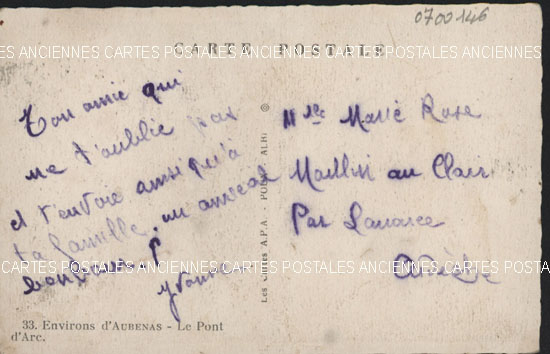 0700146
CARTE POSTALE
CARTES POSTALES ANCIENNES CARTES POSTALES ANCIENNES CARTES POSTALES ANCIENNES
Ton amie qui
ne t'oublie pas
et t'envoie ainsi qu'à
ta famille un amical
bonjour
Yvonne
Les Cartes A.P.A - POUX - ALBI
Mlle Marie Rose
au Clair
Par Lanarce
Ardèche
CARTES POSTALES ANCIENNES CARTES POSTALES ANCIENNES CARTES POSTALES
33. Environs d'AUBENAS - Le Pont
d'Arc.